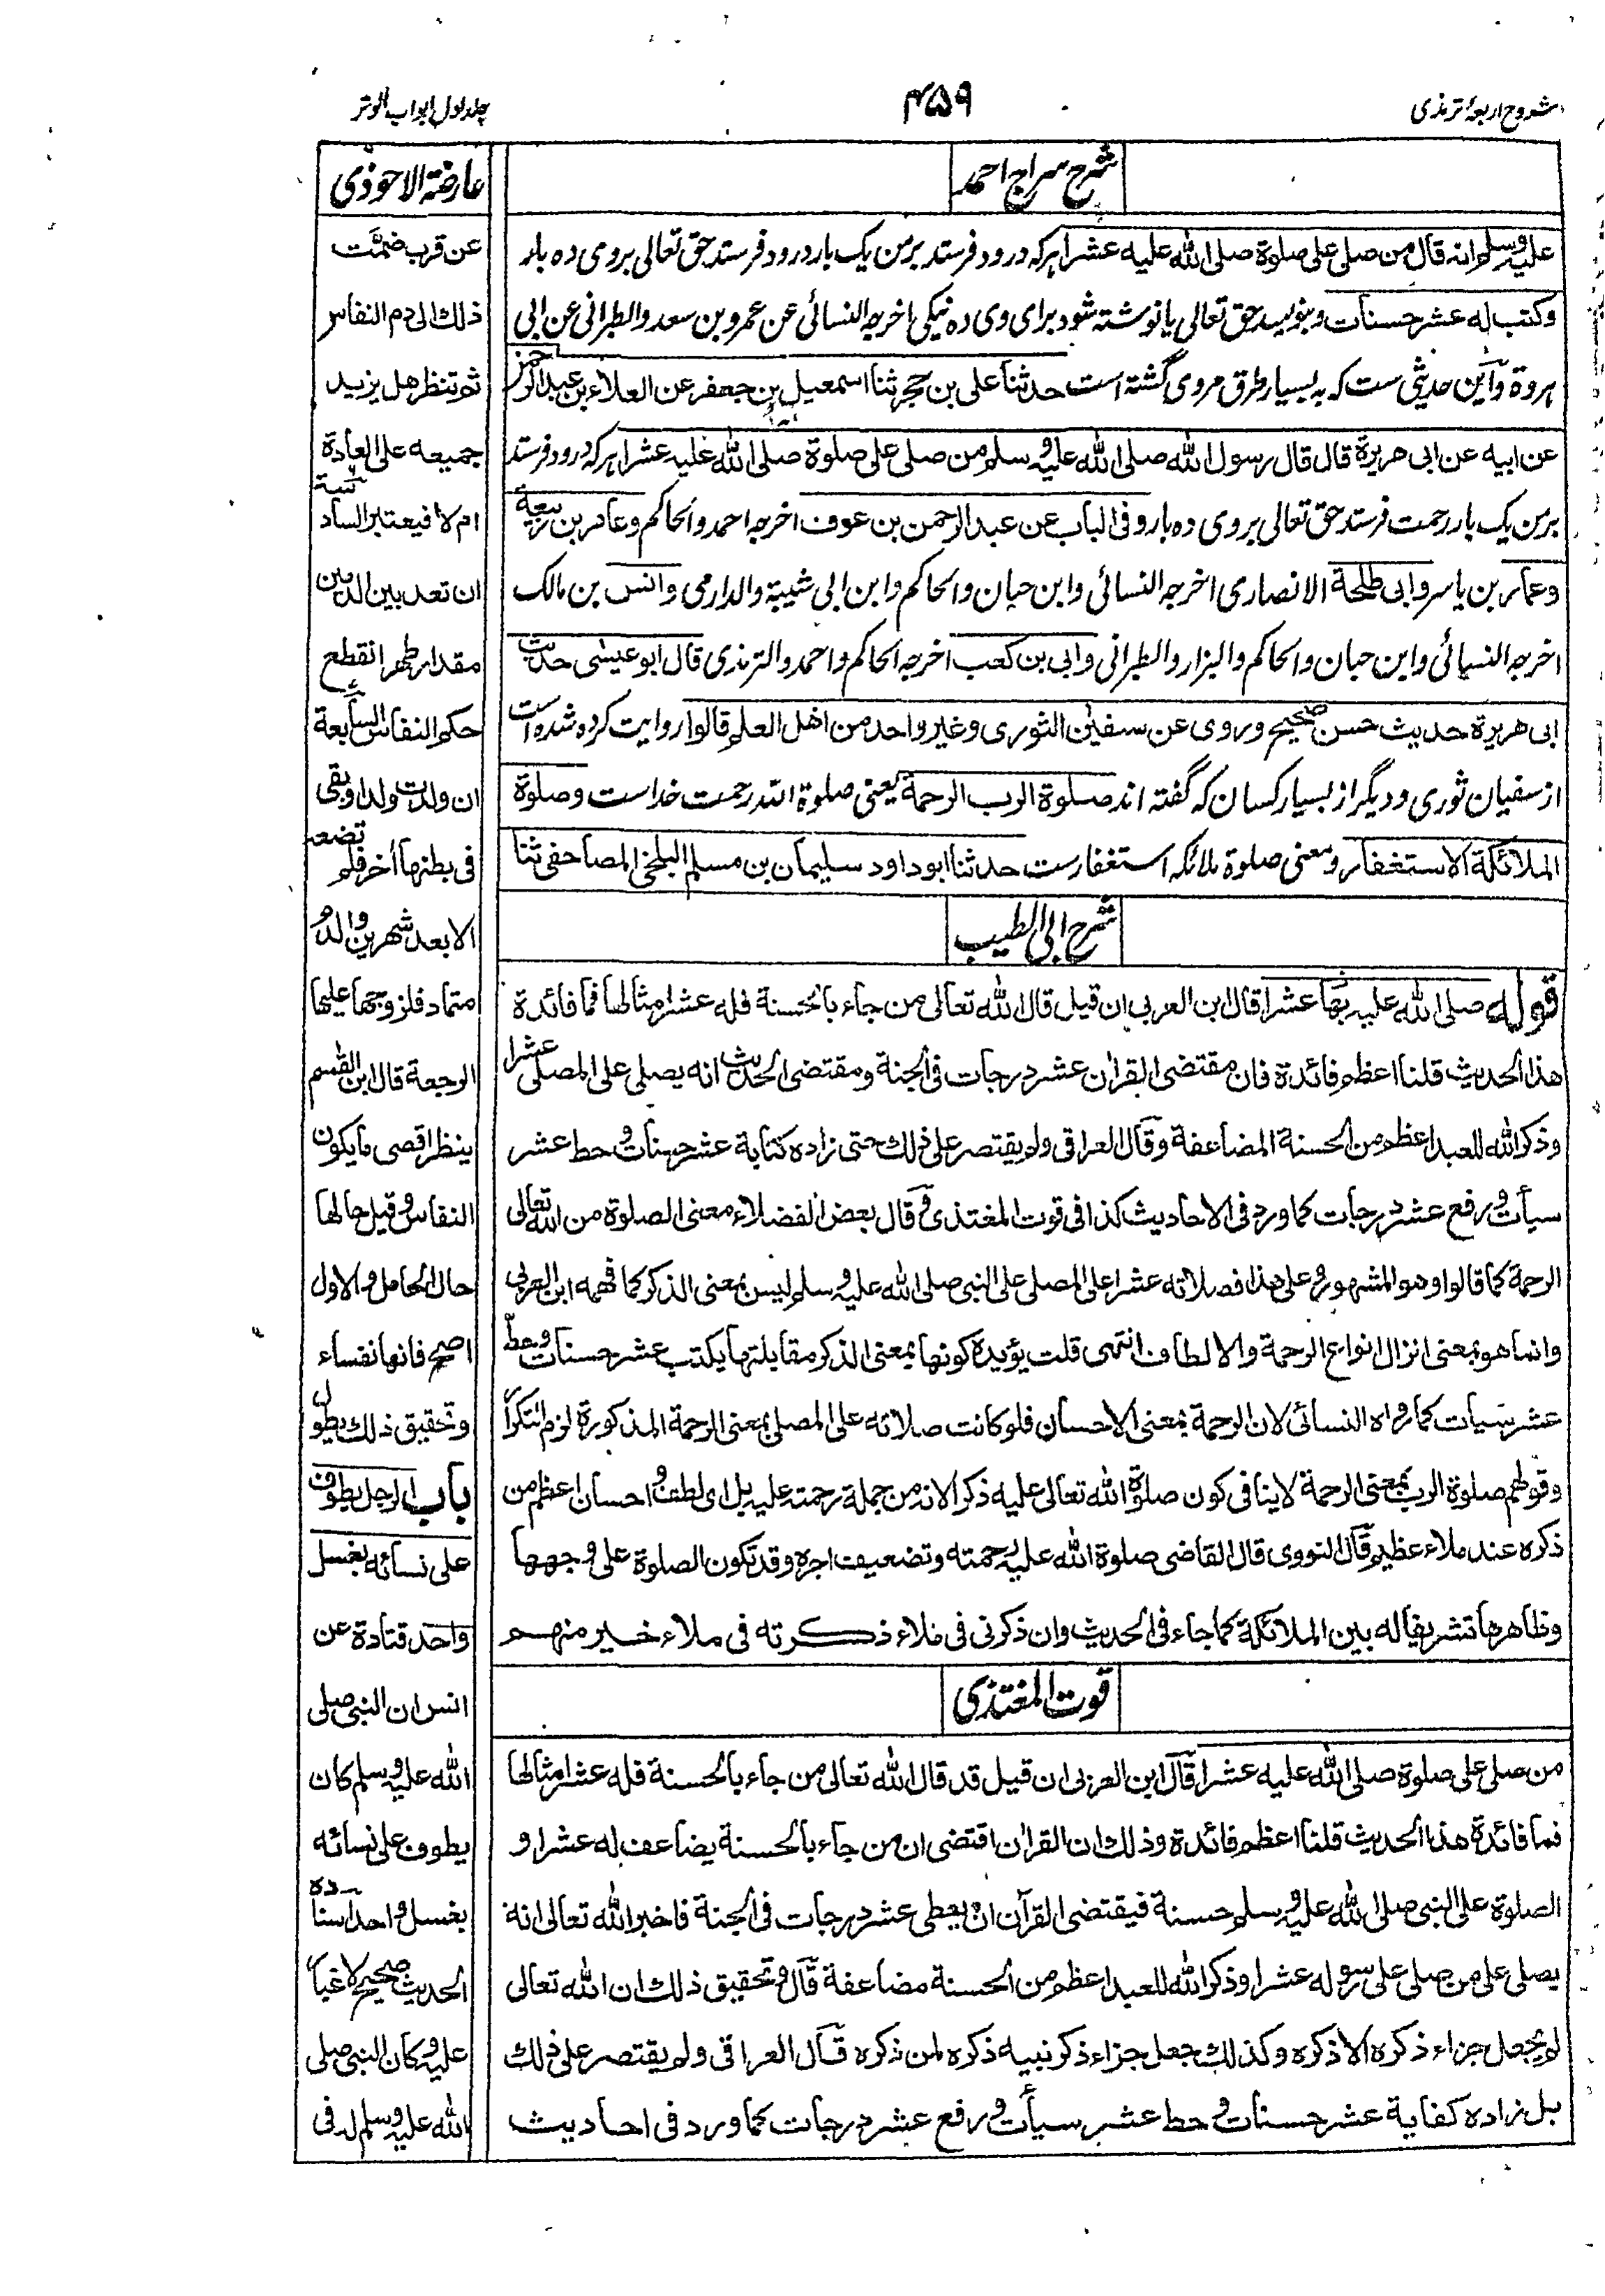 شروح اربعۂ ترمذی
۴۵۹
جلد اول ابواب الوتر
شرح سراج احمد
علیہ وسلم انہ قال من صلی علی صلوۃ صلی اللہ علیہ عشرا ہر کہ درود فرستد بر من یک بار درود فرستد حق تعالی بر وی دہ بار
وکتب لہ عشر حسنات و بنویسد حق تعالی یا نوشتہ شود برای وی دہ نیکی اخرجہ النسائی عن عمرو بن سعد والطبرانی عن ابی
ہروۃ وآین حدیثی ست کہ بہ بسیار طرق مروی گشتہ است حدثنا علی بن حجر ثنا اسمعیل بن جعفر عن العلاء بن عبد الرحمن
عن ابیہ عن ابی ھریرۃ قال قال رسول اللہ صلی اللہ علیہ وسلم من صلی علی صلوۃ صلی اللہ علیہ عشرا ہر کہ درود فرستد
بر من یک بار رحمت فرستد حق تعالی بر وی دہ بار وفی الباب عن عبد الرحمن بن عوف اخرجہ احمد والحاکم وعامر بن ربیعۃ
وعمار بن یاسر وابی طلحۃ الانصاری اخرجہ النسائی وابن حبان والحاکم وابن ابی شیبۃ والدارمی وانس بن مالک
اخرجہ النسائی وابن حبان والحاکم والبزار والطبرانی وابی بن کعب اخرجہ الحاکم واحمد والترمذی قال ابو عیسٰی حدیث
ابی ھریرۃ حدیث حسن صحیح وروی عن سفیٰن الثوری وغیر واحد من اھل العلم قالوا روایت کردہ شدہ است
از سفیان ثوری و دیگر از بسیار کسان کہ گفتہ اند صلوۃ الرب الرحمۃ یعنی صلوۃ اللہ رحمت خداست وصلوۃ
الملائکۃ الاستغفار ومعنی صلوۃ ملائکہ استغفارست حدثنا ابو داود سلیمان بن مسلم البلخی المصاحفی ثنا
شرح ابی الطیب
قولہ صلی اللہ علیہ بھا عشرا قال ابن العربی ان قیل قال اللہ تعالی من جاء بالحسنۃ فلہ عشر امثالھا فما فائدۃ
ھذا الحدیث قلنا اعظم فائدۃ فان مقتضی القراٰن عشر درجات فی الجنۃ ومقتضی الحدیث انہ یصلی علی المصلی عشرا
وذکر اللہ للعبد اعظم من الحسنۃ المضاعفۃ وقال العراقی ولم یقتصر علی ذلک حتی زادہ کتابۃ عشر حسنات وحط عشر
سیأت ورفع عشر درجات کما ورد فی الاحادیث کذا فی قوت المغتذی وقال بعض الفضلاء معنی الصلوۃ من اللہ تعالی
الرحمۃ کما قالوا وھو المشھور وعلی ھذا فصلاتہ عشرا علی المصلی علی النبی صلی اللہ علیہ وسلم لیس بمعنی الذکر کما فھمہ ابن العربی
وانما ھو بمعنی انزال انواع الرحمۃ والالطاف انتھی قلت یؤیدہ کونھا بمعنی الذکر مقابلتھا بکتب عشر حسنات وحط
عشر سیأت کما رواہ النسائی لان الرحمۃ بمعنی الاحسان فلو کانت صلاتہ علی المصلی بمعنی الرحمۃ المذکورۃ لزم التکرار
وقولھم صلوۃ الرب بمعنی الرحمۃ لاینافی کون صلوۃ اللہ تعالی علیہ ذکرا لانہ من جملۃ رحمتہ علیہ بل ای لطف واحسان اعظم من
ذکرہ عند ملاء عظیم قال النووی قال القاضی صلوۃ اللہ علیہ رحمتہ وتضعیف اجرہ وقد تکون الصلوۃ علی وجھھا
وظاھرھا تشریفا لہ بین الملائکۃ کما جاء فی الحدیث وان ذکرنی فی ملاء ذکرتہ فی ملاء خیر منھم
قوت المغتذی
من صلی علی صلوۃ صلی اللہ علیہ عشرا قال ابن العربی ان قیل قد قال اللہ تعالی من جاء بالحسنۃ فلہ عشر امثالھا
فما فائدۃ ھذا الحدیث قلنا اعظم فائدۃ وذلک ان القراٰن اقتضی ان من جاء بالحسنۃ یضاعف لہ عشرا و
الصلوۃ علی النبی صلی اللہ علیہ وسلم حسنۃ فیقتضی القرآن ان یعطی عشر درجات فی الجنۃ فاخبر اللہ تعالی انہ
یصلی علی من صلی علی رسولہ عشرا وذکر اللہ للعبد اعظم من الحسنۃ مضاعفۃ قال وتحقیق ذلک ان اللہ تعالی
لم یجعل جزاء ذکرہ الا ذکرہ وکذلک جعل جزاء ذکر نبیہ ذکرہ لمن ذکرہ قال العراقی ولم یقتصر علی ذلک
بل زادہ کفایۃ عشر حسنات وحط عشر سیأت ورفع عشر درجات کما ورد فی احادیث
عارضۃ الاحوذی
عن قرب ضمّت
ذلک الی دم النفاس
ثم تنظر ھل یزید
جمیعہ علی العادۃ
ام لا فیعتبر السادسۃ
ان تعد بین الدمین
مقدار طھر انقطع
حکم النفاس السابعۃ
ان ولدت ولدا وبقی
فی بطنھا أخر فلم تضعہ
الا بعد شھرین والدم
متماد فلزوجھا علیھا
الرجعۃ قال ابن القٰسم
ینظر اقصی ما یکون
النفاس وقیل حالھا
حال الحامل والاول
اصح فانھا نفساء
وتحقیق ذلک یطول
باب الرجل یطوف
علی نسائہ بغسل
واحد قتادۃ عن
انس ان النبی صلی
اللہ علیہ وسلم کان
یطوف علی نسائہ
بغسل واحد اسنادہ
الحدیث صحیح لا غبار
علیہ وکان النبی صلی
اللہ علیہ وسلم لہ فی